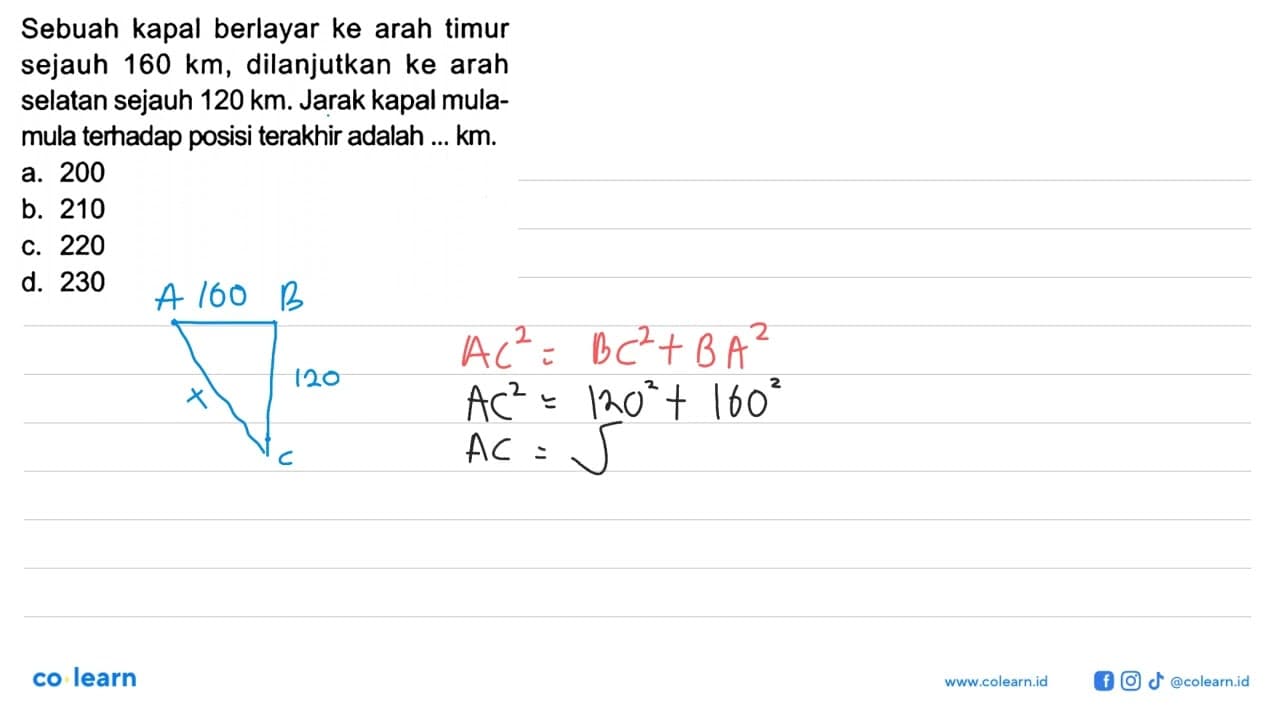 Sebuah kapal berlayar ke arah timur
sejauh 160 km, dilanjutkan ke arah
selatan sejauh 120 km. Jarak kapal mula-
mula terhadap posisi terakhir adalah ... km.
a. 200
b. 210
c. 220
d. 230
A 160 B
120
x
C
AC² = BC² + BA²
AC² = 120² + 160²
AC = √
co learn
www.colearn.id
@colearn.id